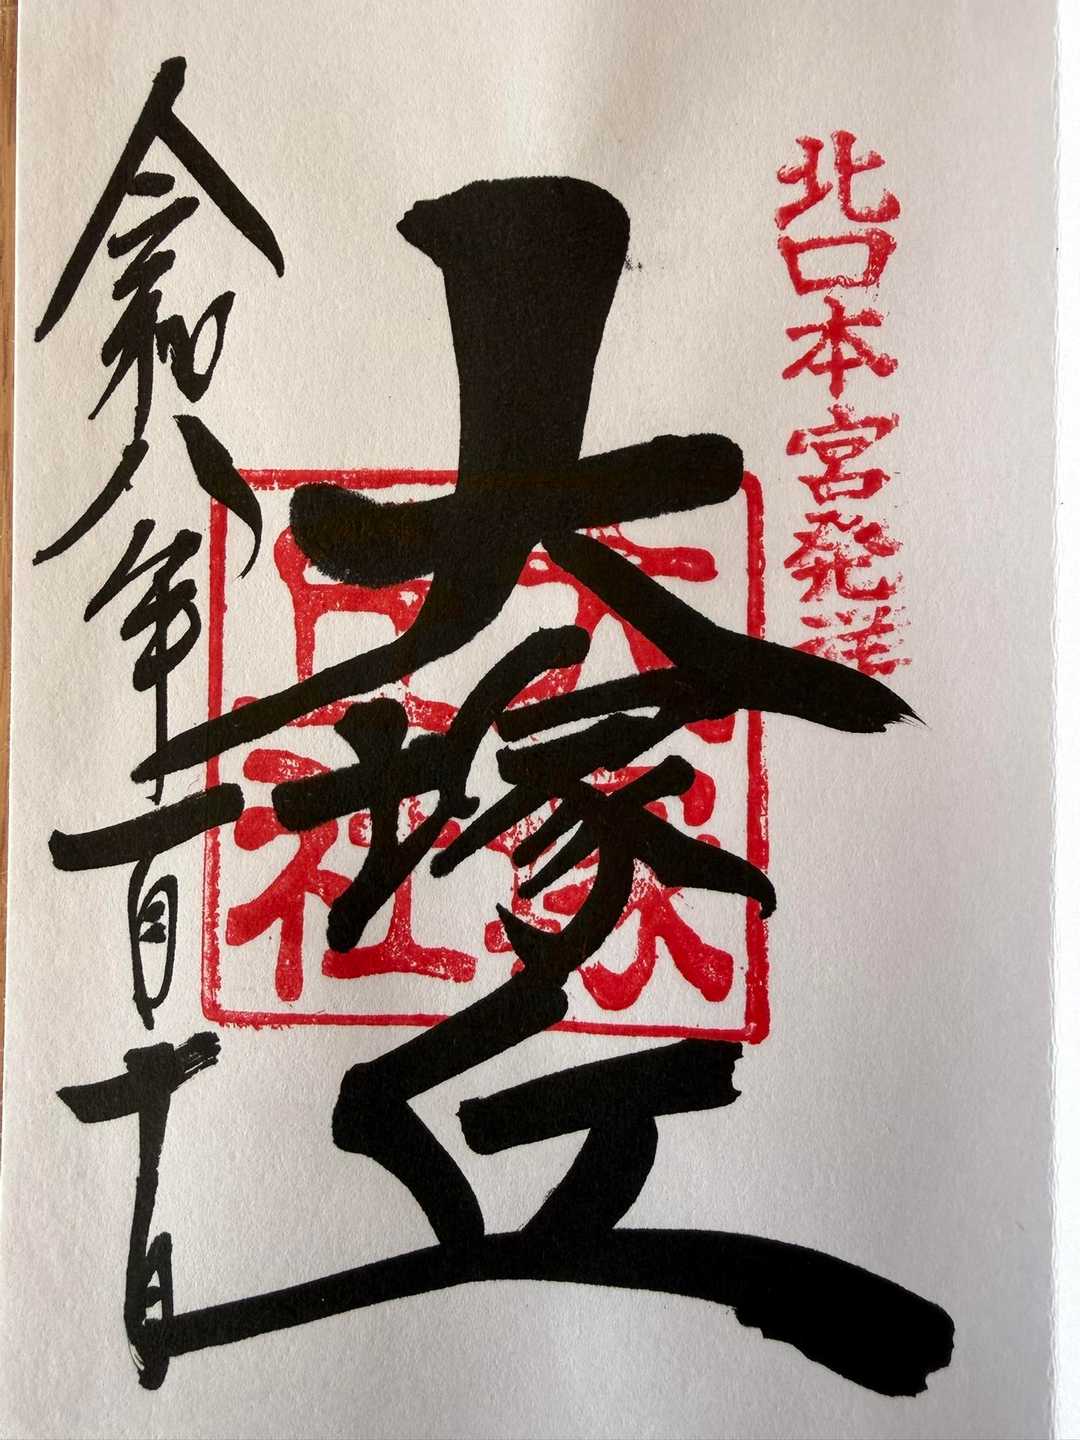 北口本宮発祥
大塚丘
大塚
丘社
令和八年一月十日